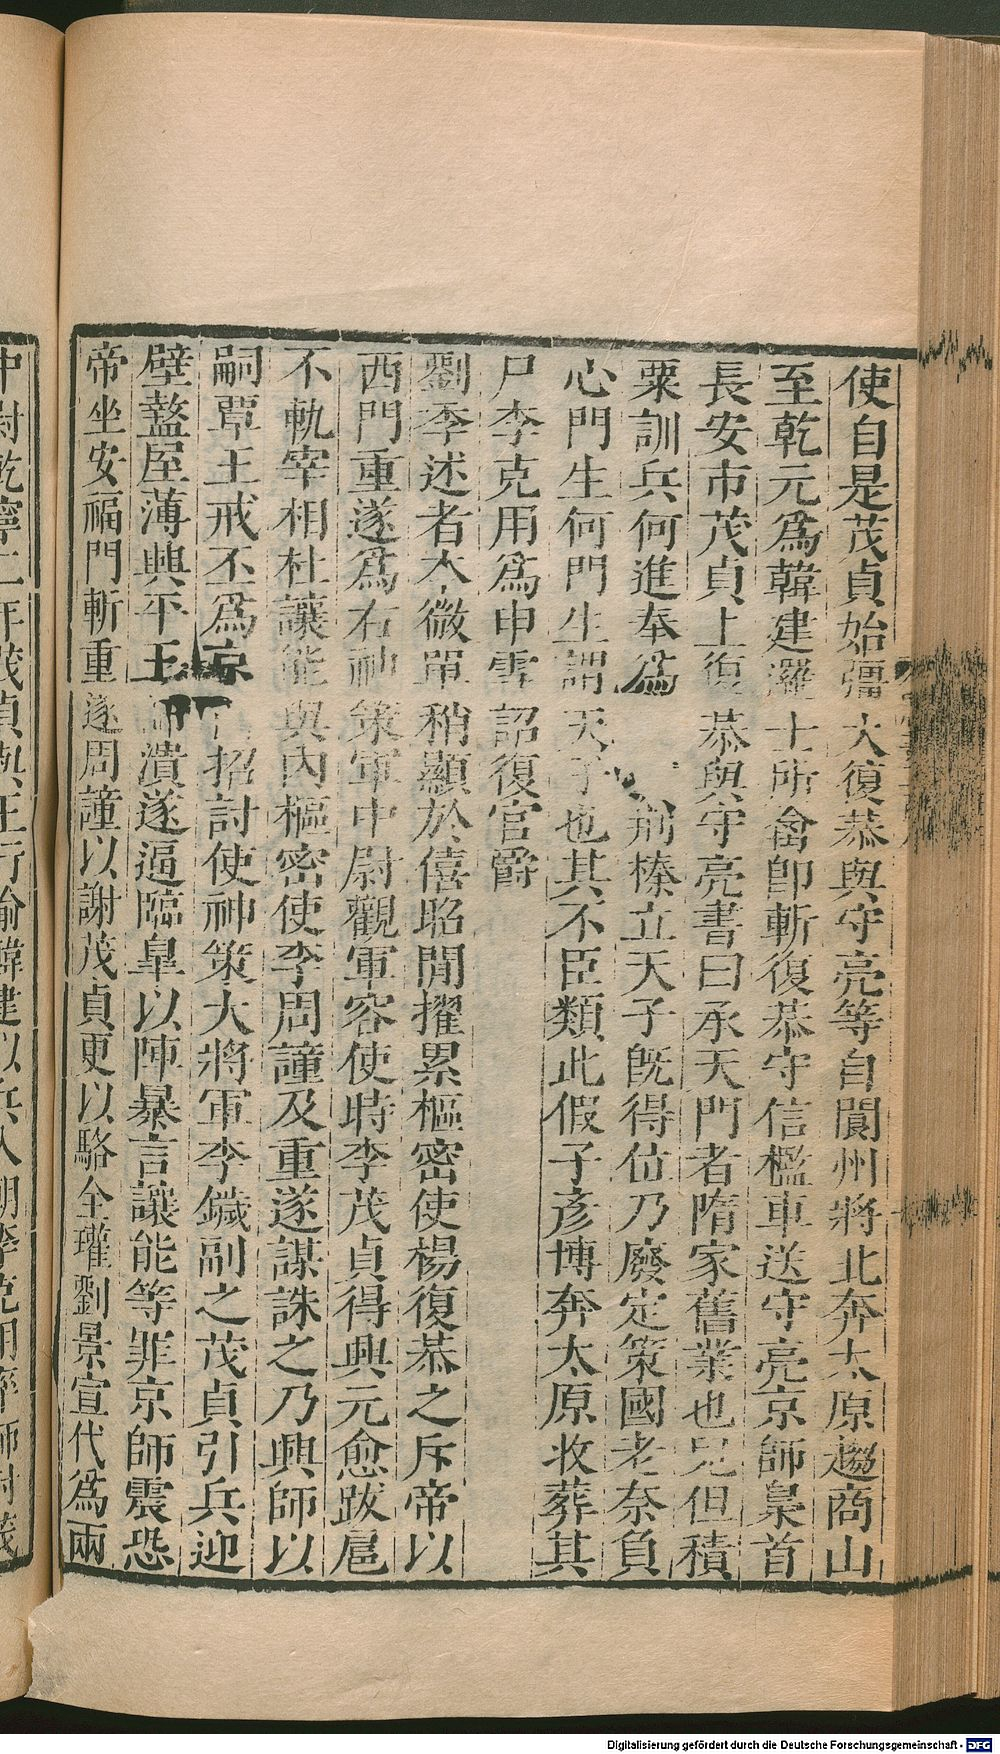 使自是茂貞始彊大復恭與守亮等自閬州將北奔太原趨商山
至乾元爲韓建邏士所禽卽斬復恭守信檻車送守亮京師梟首
長安市茂貞上復恭與守亮書曰承天門者隋家舊業也兒但積
粟訓兵何進奉爲 荊榛立天子旣得位乃廢定策國老奈負
心門生何門生謂天子也其不臣類此假子彥博奔太原收葬其
尸李克用爲申雪詔復官爵
劉季述者本微單稍顯於僖昭閒擢累樞密使楊復恭之斥帝以
西門重遂爲右神策軍中尉觀軍容使時李茂貞得興元愈跋扈
不軌宰相杜讓能與內樞密使李周諲及重遂謀誅之乃興師以
嗣覃王戒丕爲京 招討使神策大將軍李鐬副之茂貞引兵迎
壁盩厔薄興平王師潰遂逼臨臯以陣暴言讓能等罪京師震恐
帝坐安福門斬重遂周諲以謝茂貞更以駱全瓘劉景宣代爲兩
中尉乾寧二年茂貞執王行瑜韓建以兵入朝李克用率師討茂
Digitalisierung gefördert durch die Deutsche Forschungsgemeinschaft - DFG